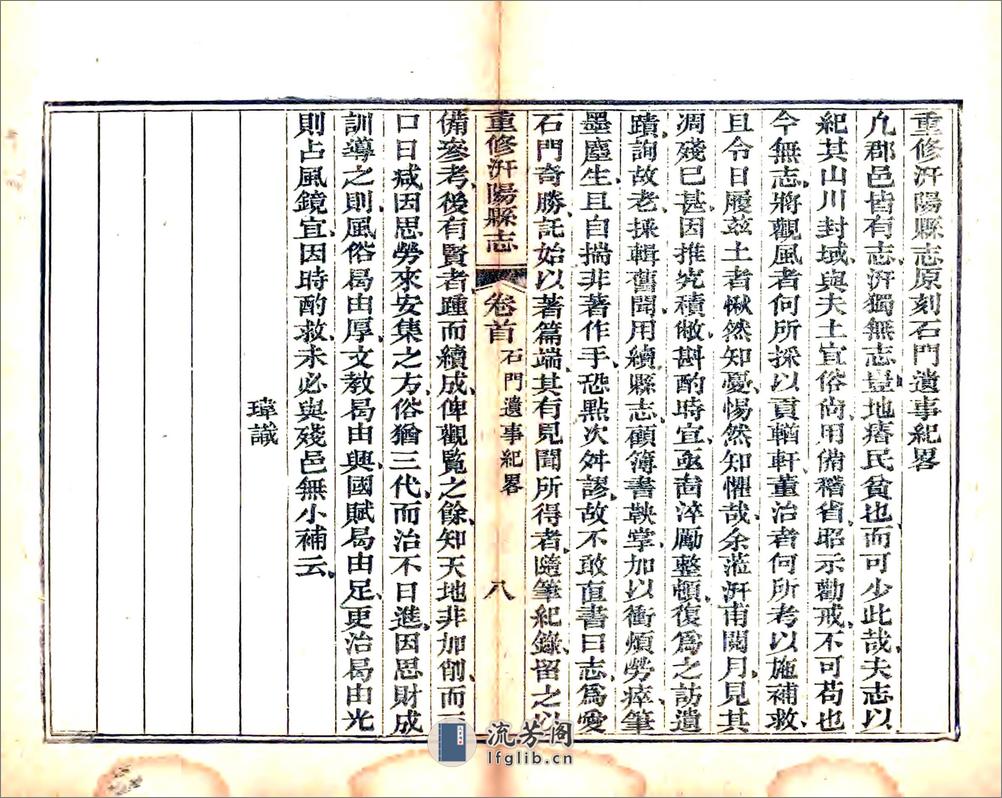 重修汧陽縣志原刻石門遺事紀畧
凢郡邑皆有志汧獨無志豈地瘠民貧也而可少此哉夫志以
紀其山川封域與夫土宜俗尚用備稽省昭示勸戒不可苟也
今無志將觀風者何所採以貢輶軒董治者何所考以施補救
且令日履兹土者愀然知憂惕然知懼哉余涖汧甫閱月見其
凋殘已甚因推究積敝斟酌時宜亟啚淬勵整頓復爲之訪遺
蹟詢故老採輯舊聞用續縣志顧簿書鞅掌加以衝煩勞瘁筆
墨塵生且自揣非著作手恐點次舛謬故不敢直書曰志爲愛
石門奇勝託始以著篇端其有見聞所得者隨筆紀錄留之以
重修汧陽縣志
卷首
石門遺事紀畧
八
備參考後有賢者踵而續成俾觀覧之餘知天地非加削而
口日减因思勞來安集之方俗猶三代而治不日進因思財成
訓導之則風俗曷由厚文教曷由興國賦曷由足更治曷由光
則占風鏡宜因時酌救未必與殘邑無小補云
瑋識
流芳阁
lfglib.cn